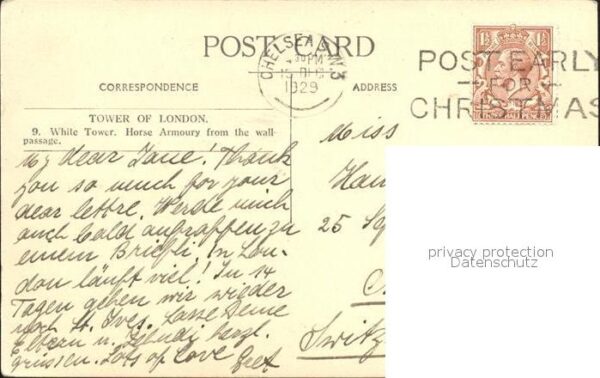 POST CARD
CHELSEA S.W.3
30 PM
15 DEC
1929
POST EARLY
FOR
CHRISTMAS
CORRESPONDENCE
ADDRESS
TOWER OF LONDON.
9. White Tower. Horse Armoury from the wall-
passage.
My dear Jane! Thank
you so much for your
dear lettre. Werde mich
auch bald aufraffen zu
einem Briefli. In Lon-
don läuft viel! In 14
Tagen gehen wir wieder
nach St. Ives. Lasse Deine
Eltern u. herzl.
grüssen. Lots of love
Miss
25
Switz
privacy protection
Datenschutz